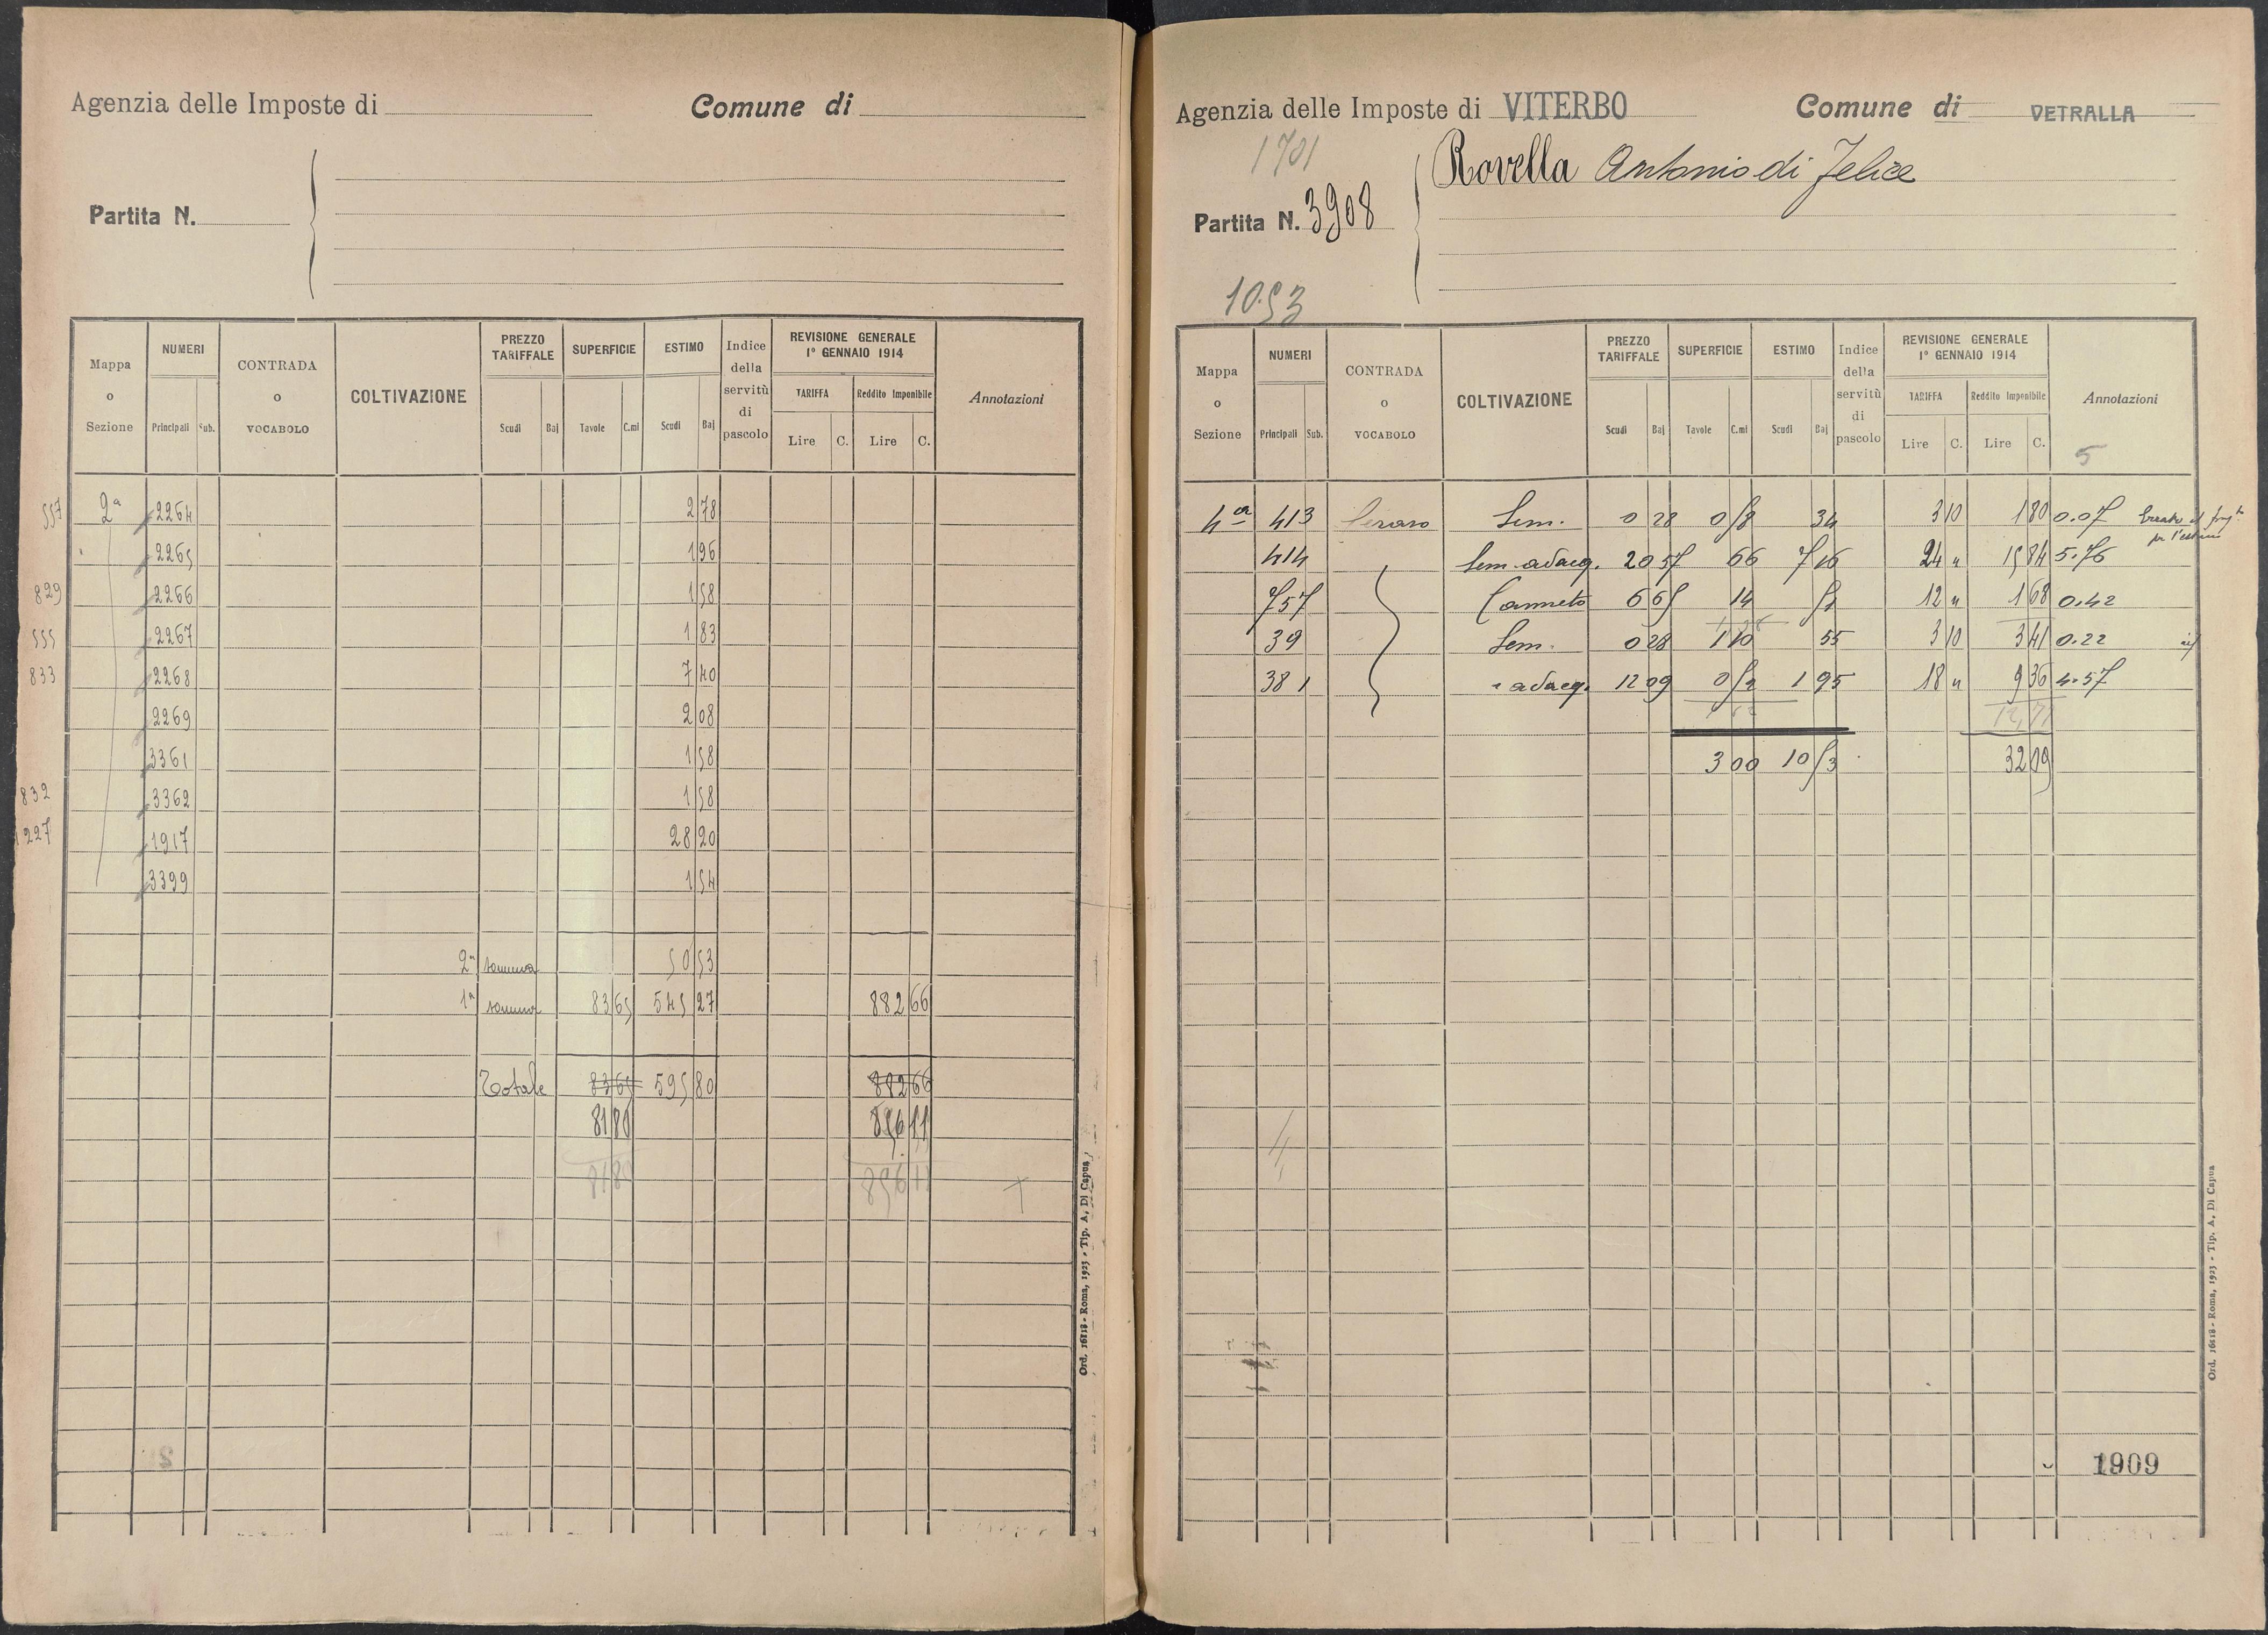 Agenzia delle Imposte di
Comune di
Partita N.
Mappa o Sezione
NUMERI
Principali
Sub.
CONTRADA o VOCABOLO
COLTIVAZIONE
PREZZO TARIFFALE
Scudi
Baj
SUPERFICIE
Tavole
C.mi
ESTIMO
Scudi
Baj
Indice della servitù di pascolo
REVISIONE GENERALE
1° GENNAIO 1914
TARIFFA
Lire
C.
Reddito Imponibile
Lire
C.
Annotazioni
557 2ª 2264 2 78
2265 1 96
829 2266 1 58
555 2267 1 83
833 2268 7 40
2269 2 08
3361 1 58
832 3362 1 58
1227 1917 28 20
3399 1 54
2ª somma 50 53
1ª somma 83 65 545 27 882 66
Totale 83 65 595 80 882 66
81 80 896 11
81 80 896 11
Ord. 16618 - Roma, 1923 - Tip. A, Di Capua
Agenzia delle Imposte di VITERBO
Comune di VETRALLA
1701
Partita N. 3908
Rovella Antonio di Felice
1053
Mappa o Sezione
NUMERI
Principali
Sub.
CONTRADA o VOCABOLO
COLTIVAZIONE
PREZZO TARIFFALE
Scudi
Baj
SUPERFICIE
Tavole
C.mi
ESTIMO
Scudi
Baj
Indice della servitù di pascolo
REVISIONE GENERALE
1° GENNAIO 1914
TARIFFA
Lire
C.
Reddito Imponibile
Lire
C.
Annotazioni
5
4ª 413 Sem. 0 28 0 58 34 3 10 1 80 0.07
414 Sem. adacq. 20 57 66 7 16 24 " 15 84 5.76
757 Canneto 6 65 14 51 12 " 1 68 0.42
39 Sem. 0 28 1 10 55 3 10 3 41 0.22 id
381 " adacq. 12 09 0 52 1 95 18 " 9 36 4.57
3 00 10 53 32 09
1909
Ord. 16618 - Roma, 1923 - Tip. A. Di Capua